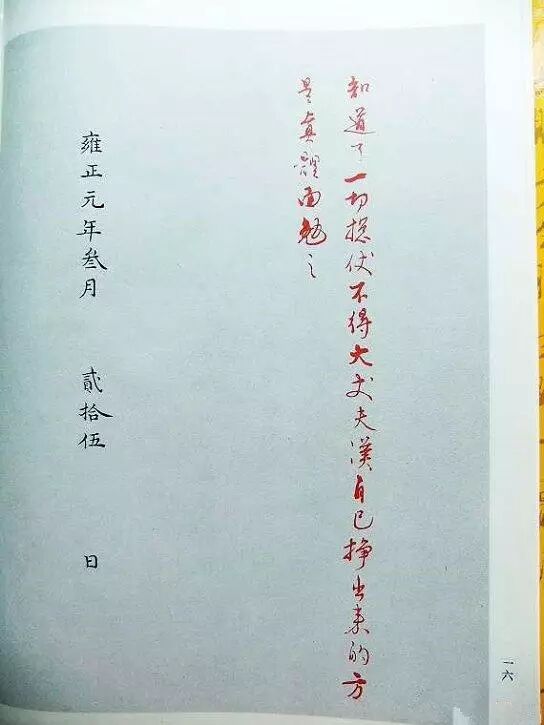 知道了一切挹仗不得大丈夫漢自己掙出来的方
是真體面勉之
雍正元年叁月 貳拾伍 日
一六